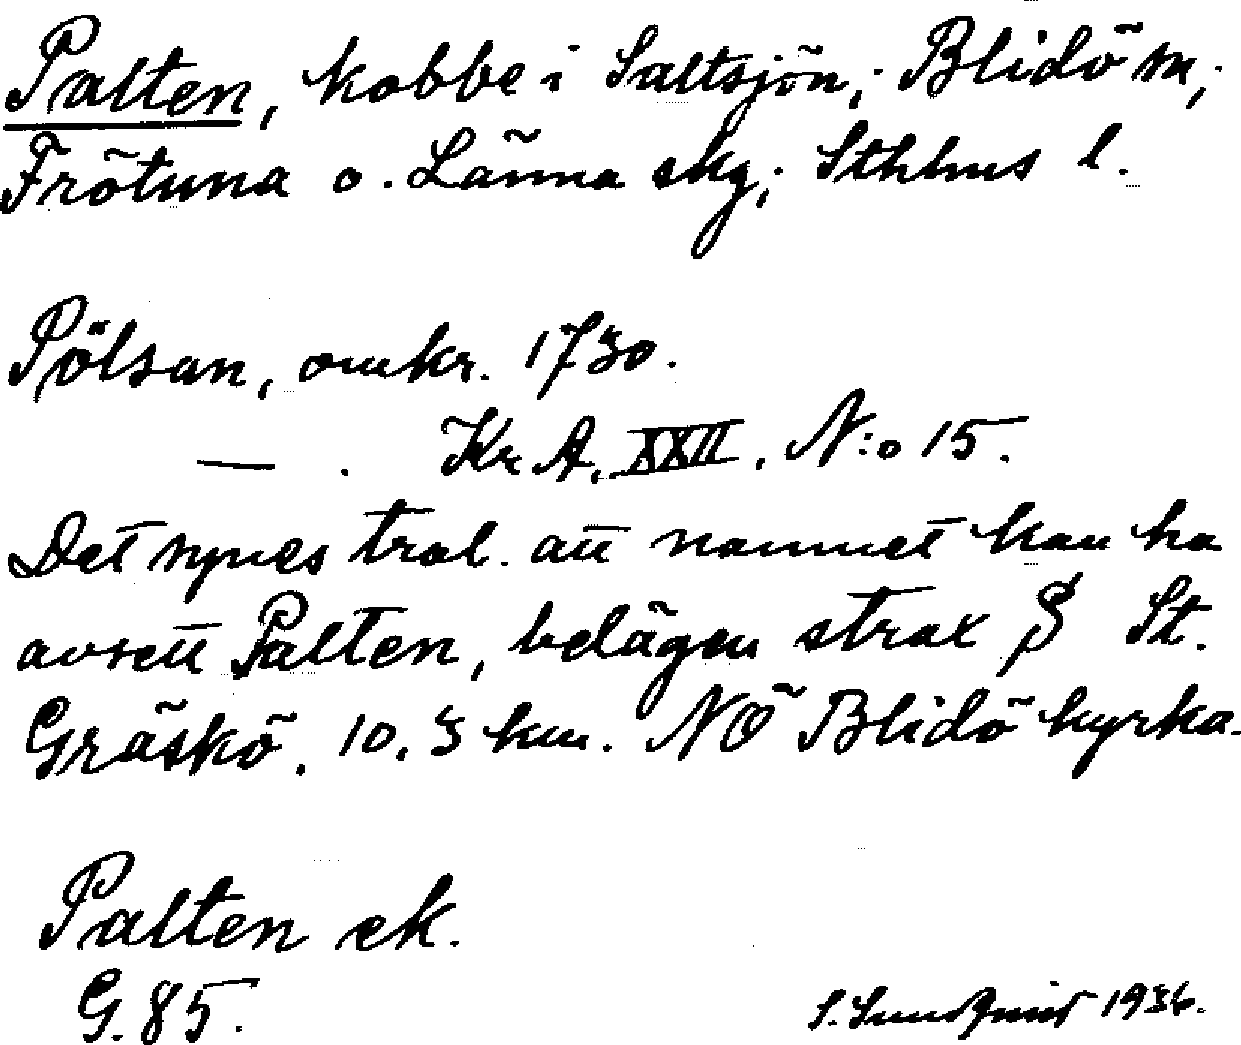 Palten, kobbe i Saltsjön; Blidö sn;
Frötuna o. Länna skg; Sthlms l.
Pölsan, omkr. 1730.
— . Kr A, XXII. N:o 15.
Det synes trol. att namnet kan ha
avsett Palten, belägen strax S St.
Gräskö. 10.3 km. NÖ Blidö kyrka.
Palten ek.
G. 85.
S. Sundqvist 1936.